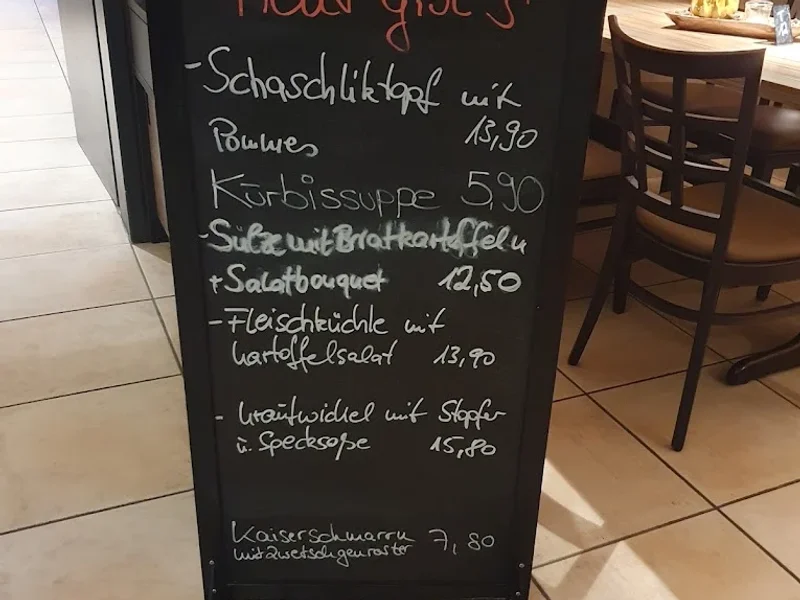 Heut gibt's!
- Schaschliktopf mit
Pommes 13,90
Kürbissuppe 5,90
- Sülze mit Bratkartoffeln
+ Salatbouquet 12,50
- Fleischküchle mit
Kartoffelsalat 13,90
- Krautwickel mit Stopfer
u. Specksoße 15,80
Kaiserschmarrn 7,80
mit Zwetschgenröster